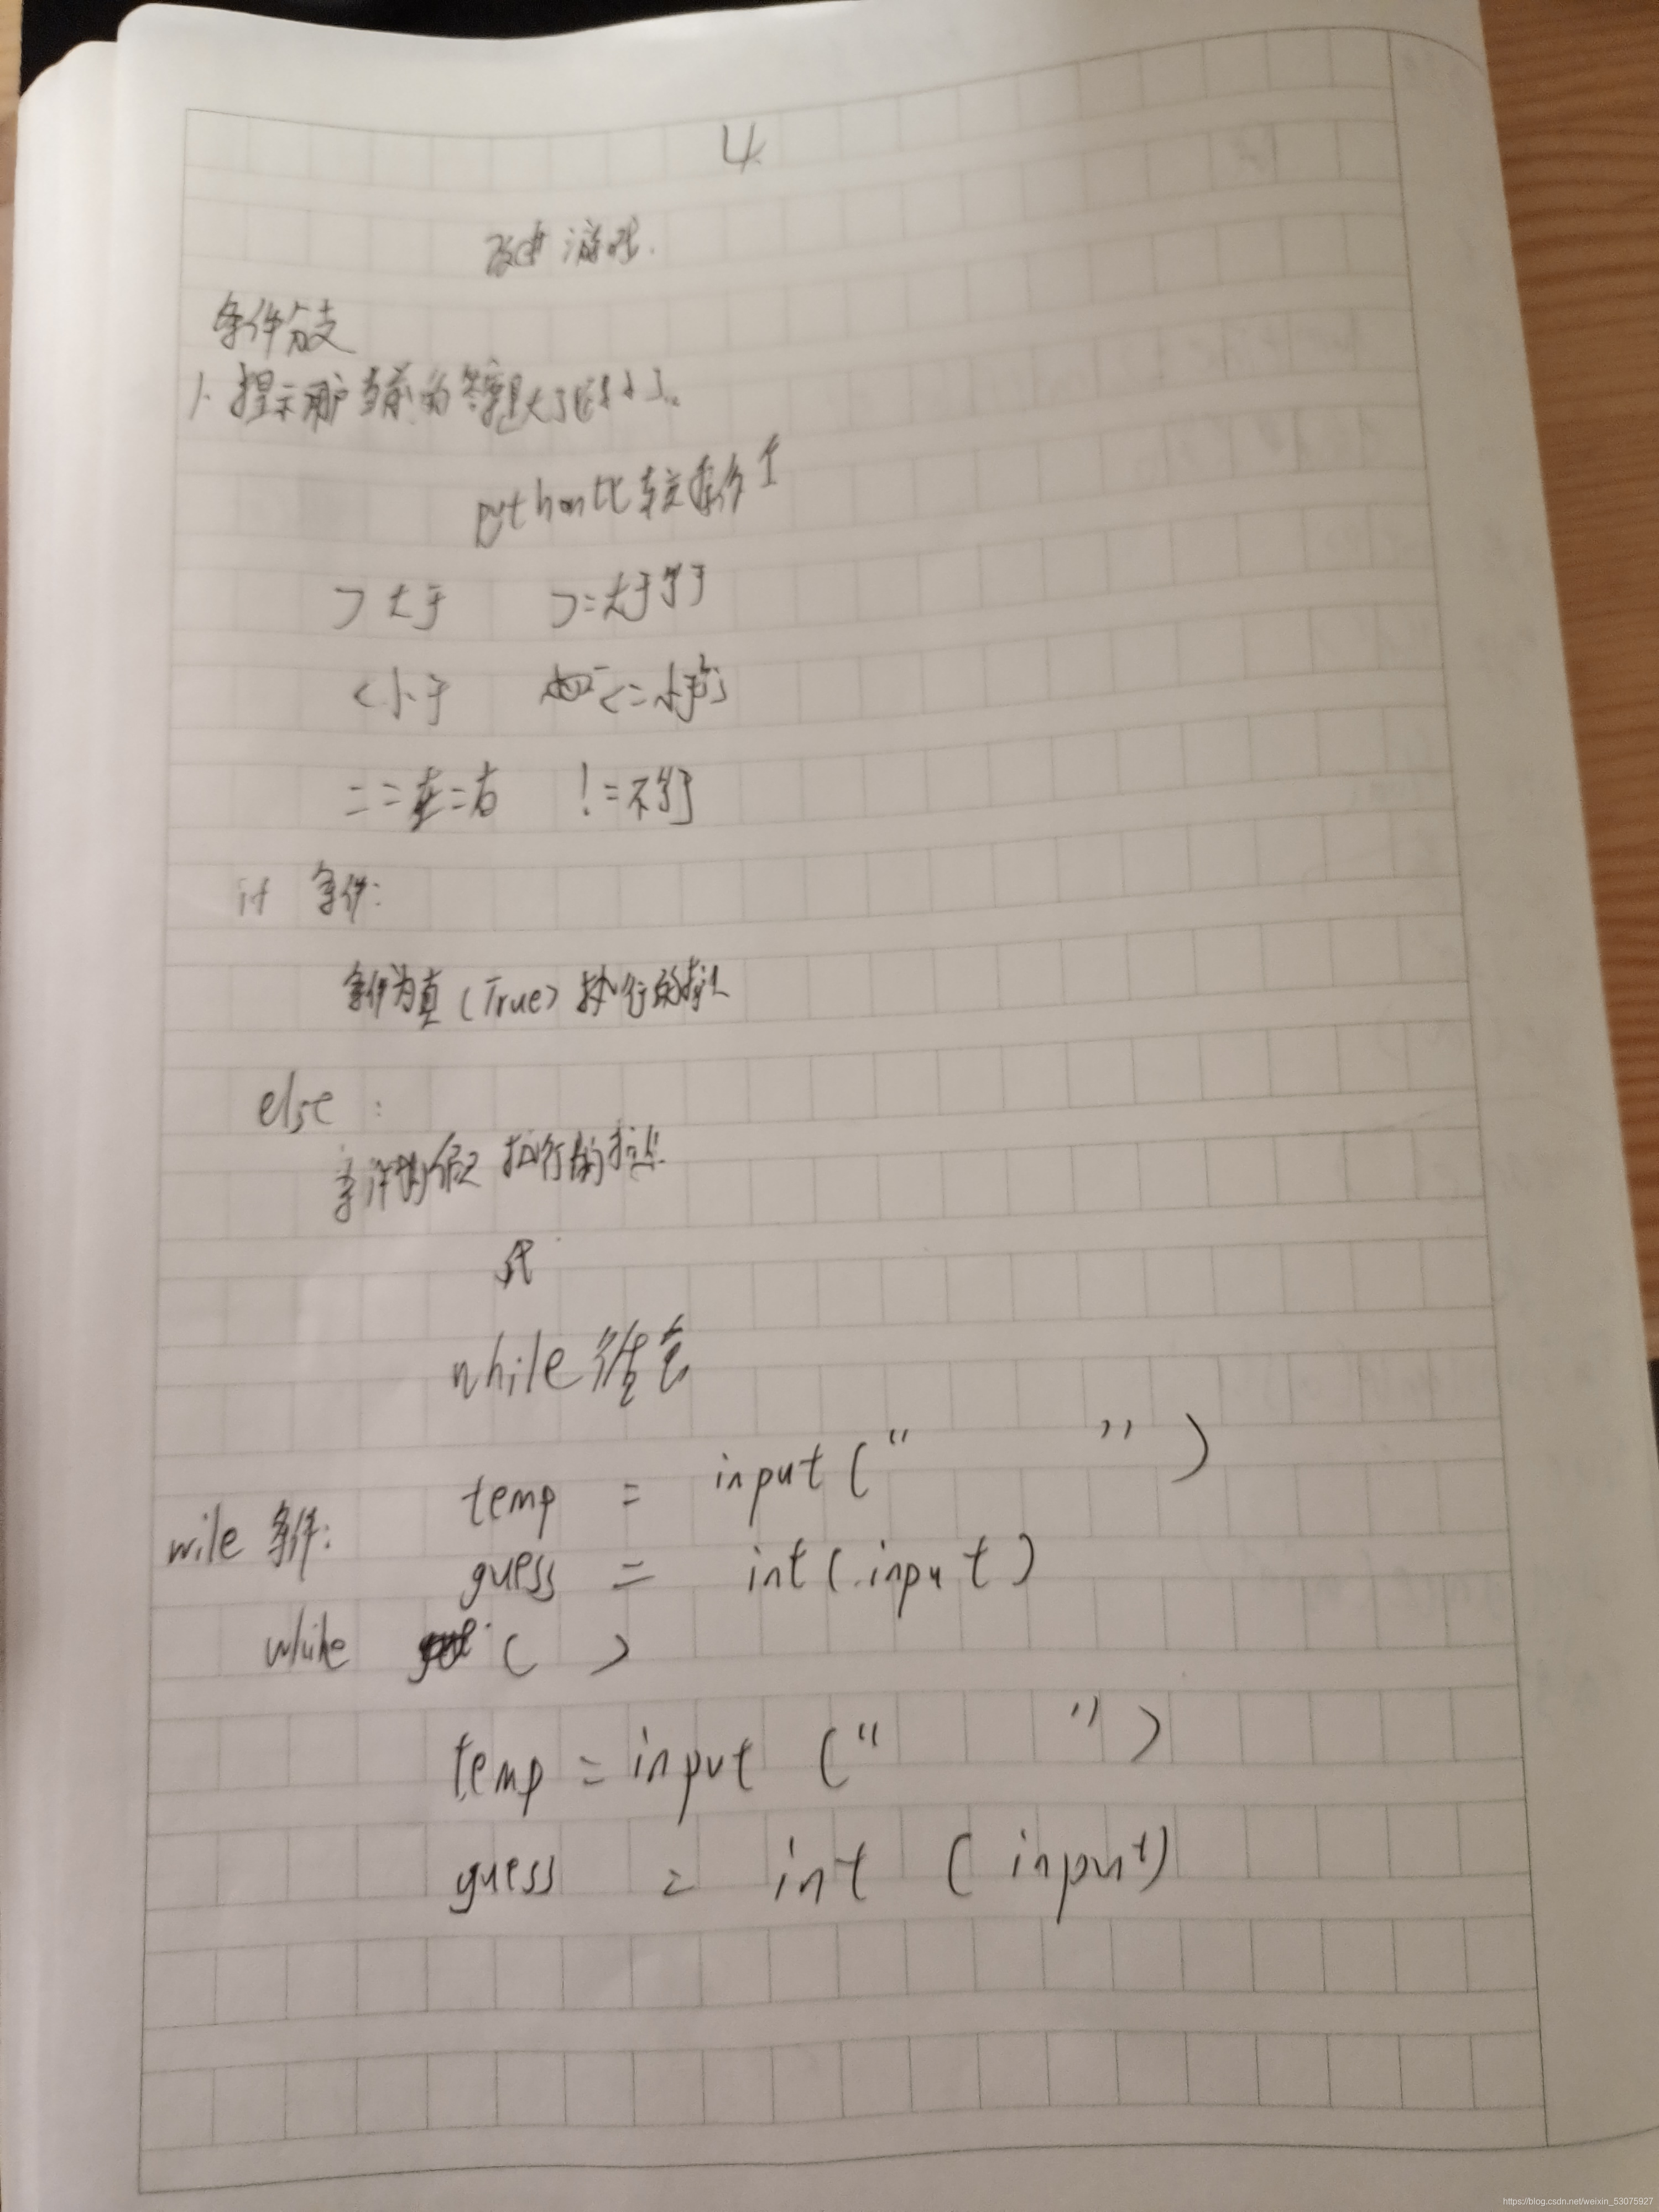 4
改进游戏.
条件分支
1. 提示用户当前的答案是大了还是小了。
python比较操作
> 大于 >=大于等于
<小于 <=小于等于
==左=右 !=不等于
if 条件:
条件为真(True)执行的操作
else :
条件为假 执行的操作
while 循环
temp = input(" ")
wile 条件:
guess = int(input)
while ( )
temp = input (" ")
guess = int (input)
https://blog.csdn.net/weixin_53075927